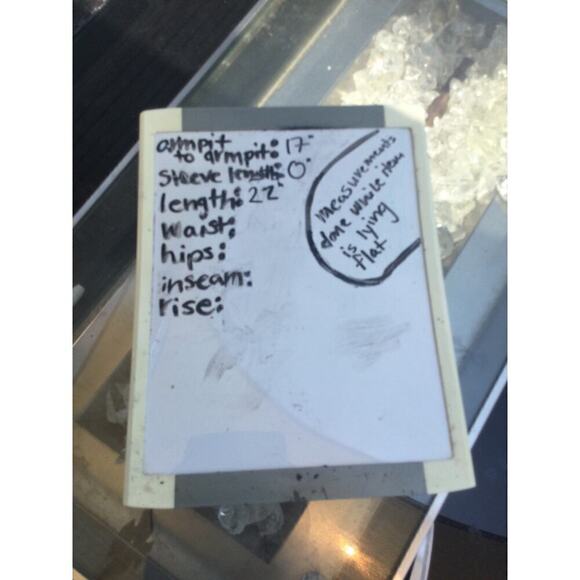 armpit
to armpit: 17"
sleeve length: 0"
length: 22"
waist:
hips:
inseam:
rise:
measurements
done while item
is lying
flat